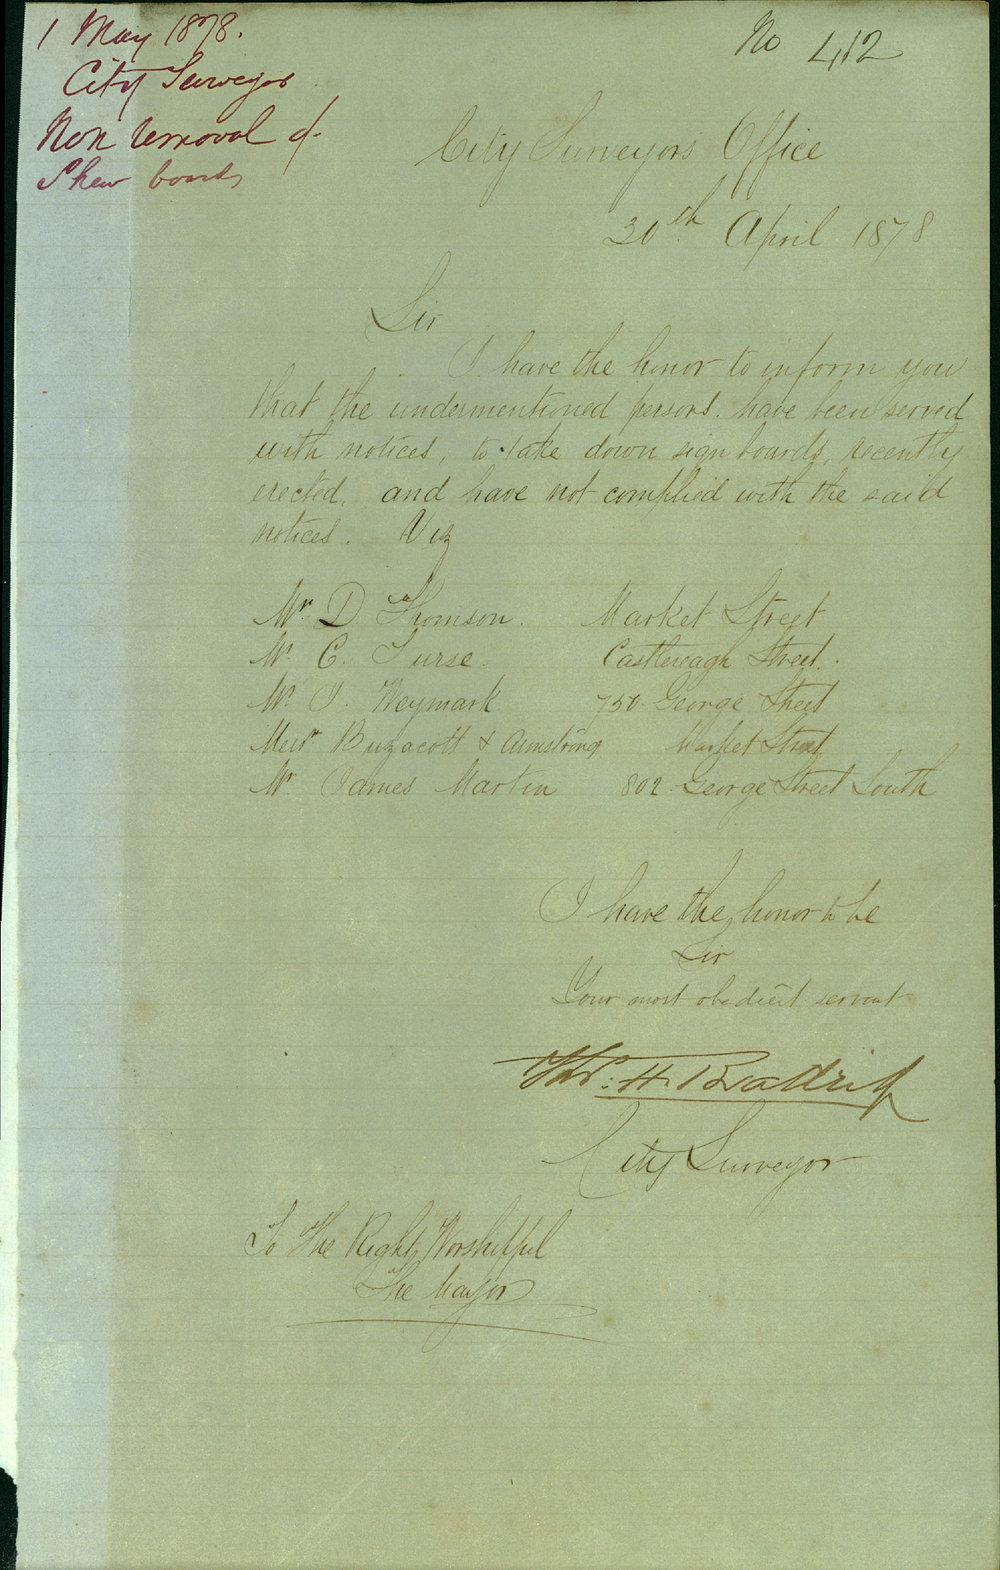 1 May 1878.
City Surveyor
Non removal of
Shew boards
No 412
City Surveyors Office
30th April 1878
Sir
I have the honor to inform you
that the undermentioned persons. have been served
with notices, to take down sign boards, recently
erected, and have not complied with the said
notices. Viz
Mr. D Thomson. Market Street
Mr. C. Furse. Castlereagh Street.
Mr. J. Weymark 750. George Street
Messrs Buzacott & Armstrong Market Street
Mr. James Martin 802 George Street South
I have the honor to be
Sir
Your most obedient servant
Thos. H. Bradridge
City Surveyor
To The Right Worshipful
The Mayor